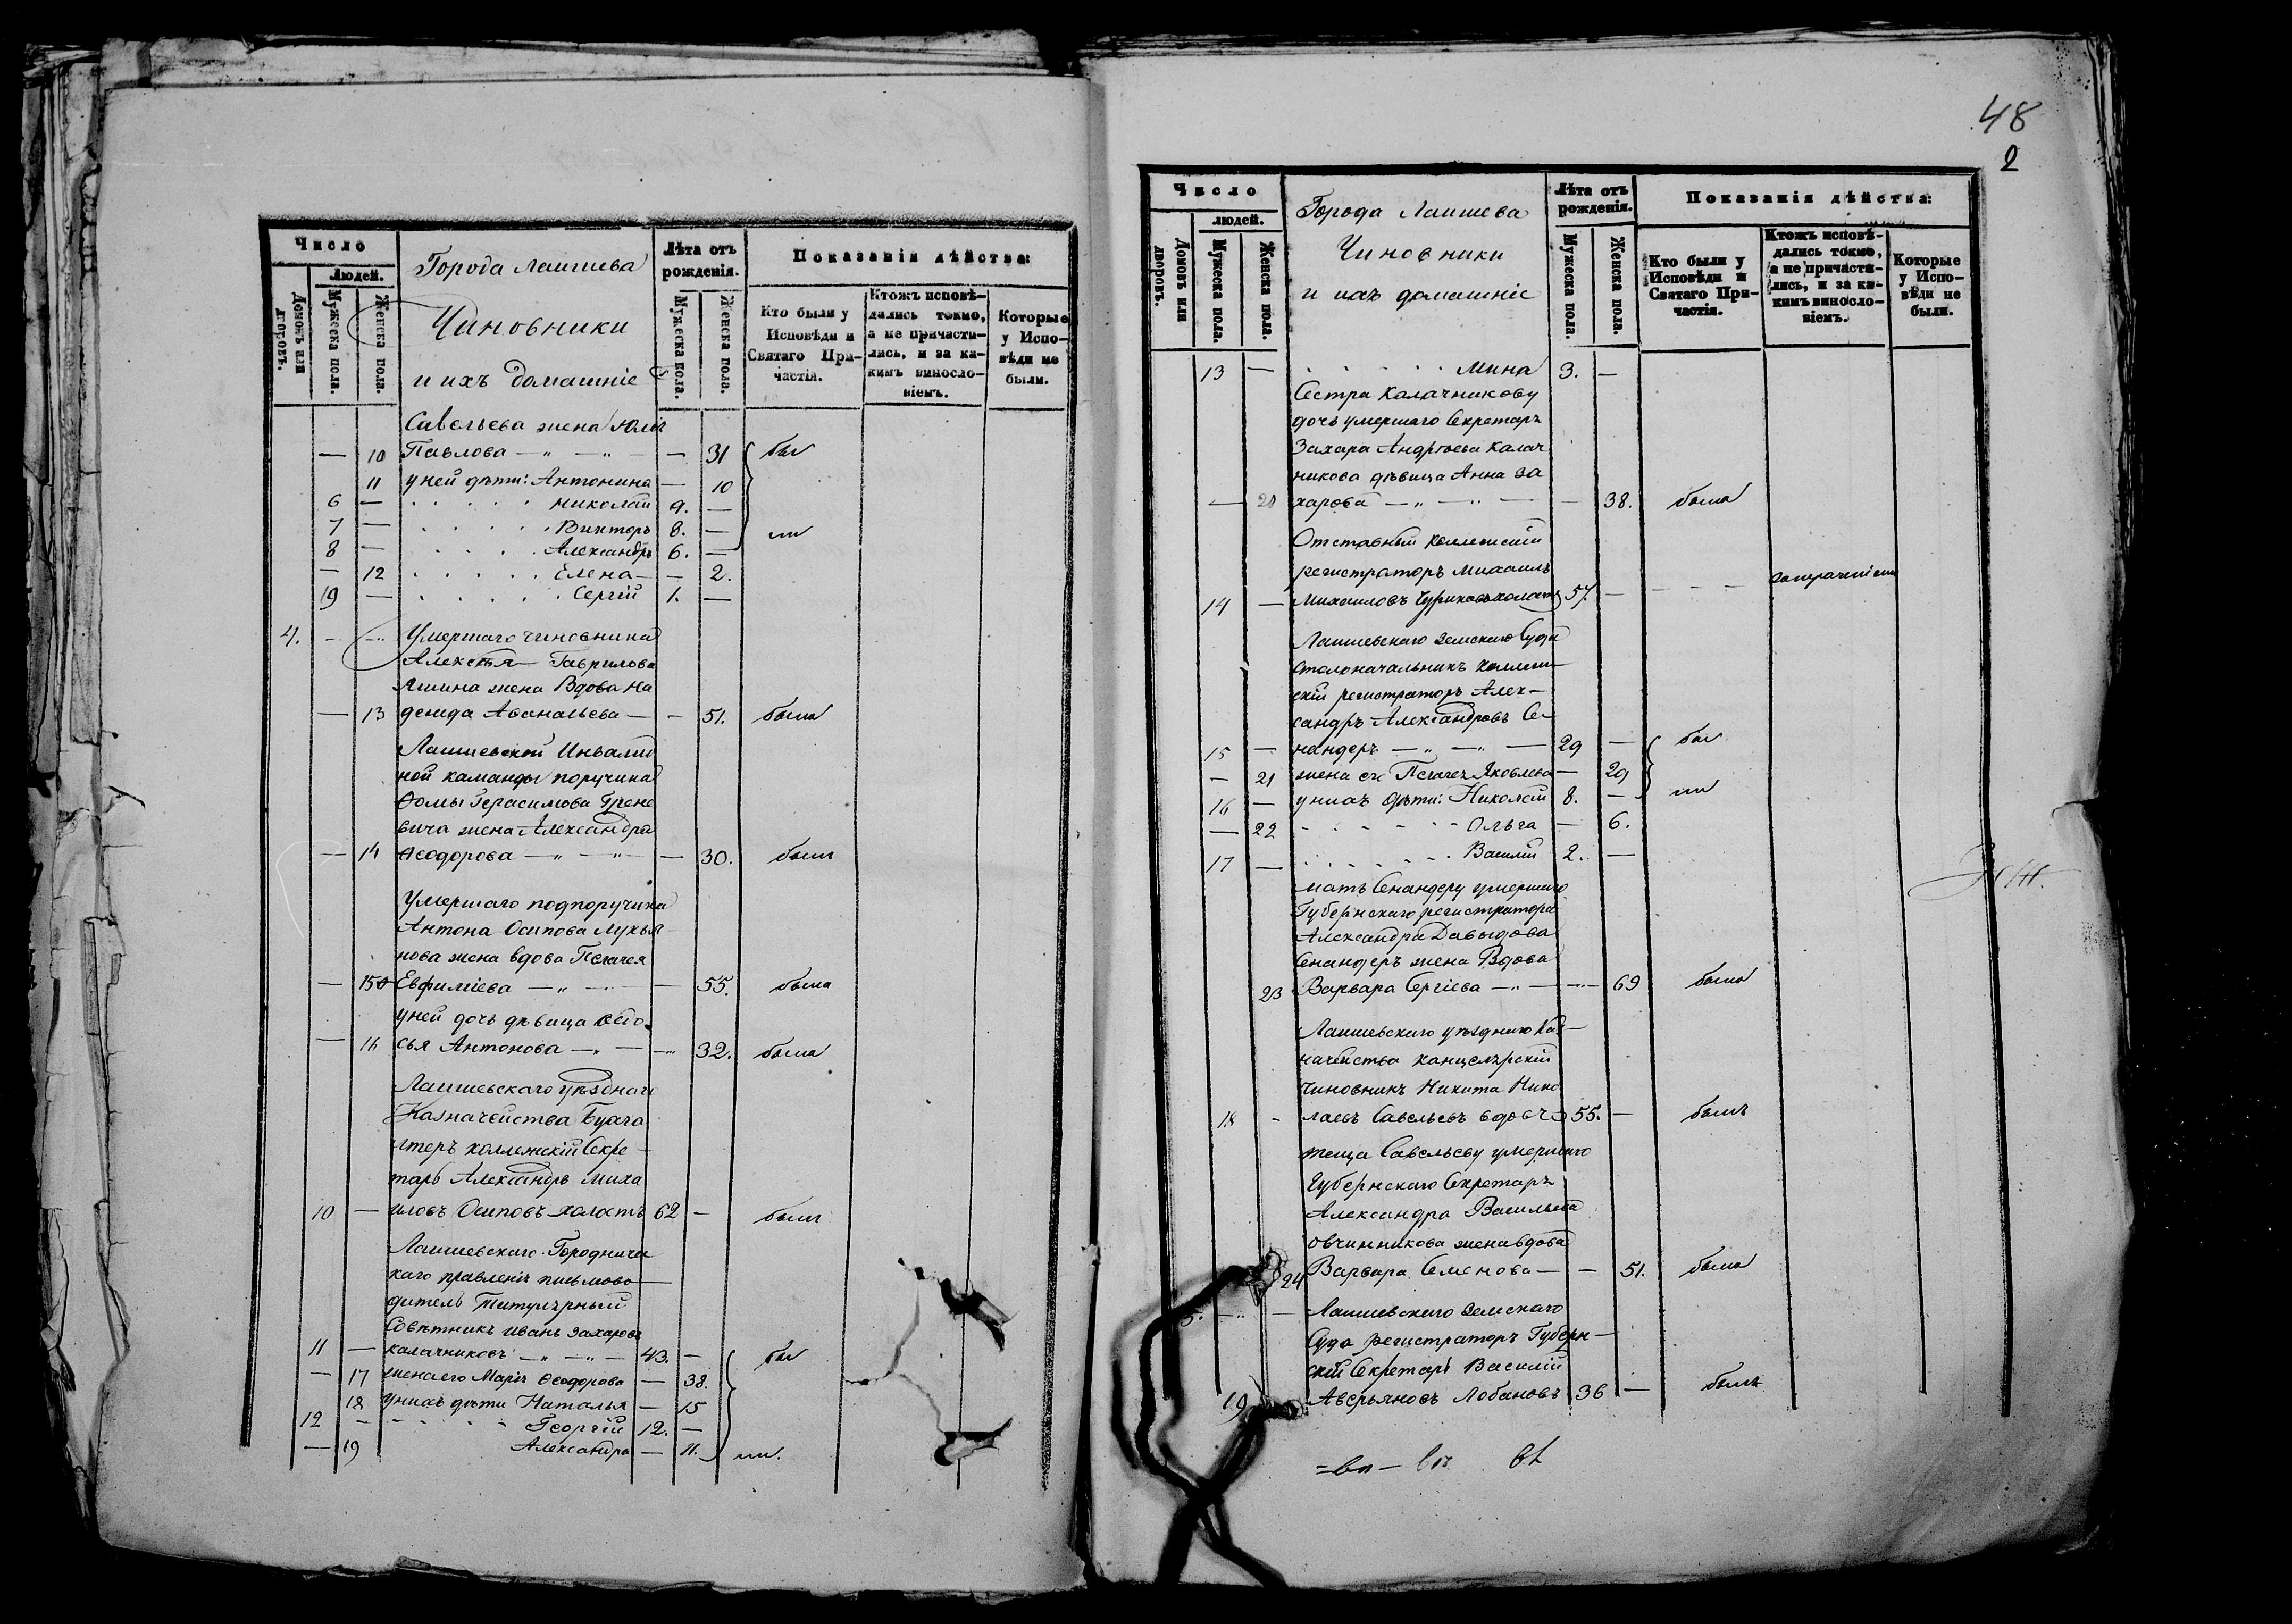 Число
Людей.
Домовъ или дворовъ.
Мужеска пола.
Женска пола.
Города Лаишева
Чиновники
и ихъ домашніе
Лѣта отъ рожденія.
Мужеска пола.
Женска пола.
Показанія дѣйства:
Кто были у Исповѣди и Святаго При-частія.
Ктожъ исповѣ-дались токмо, а не причасти-лись, и за ка-кимъ винословіемъ.
Которые у Испо-вѣди не были.
Савельева жена Юлія
— 10 Павлова — „ — „ — — 31 бы
11 у ней дѣти: Антонина — 10
6 — Николай 9. —
7 — Викторъ 8. — ли
8 — Александръ 6. —
— 12 Елена — — 2.
19 — Сергій 1. —
4. — — Умершаго чиновника
Алексѣя Гаврилова
Яшина жена Вдова На
— 13 дежда Аѳанасьева — — 51. была
Лаишевской Инвалид
ной каманды поручика
Ѳомы Герасимова Грене
вича жена Александра
— 14 Ѳеодорова — „ — „ — — 30. была
Умершаго подпоручика
Антона Осипова Лукья
нова жена вдова Пелагея
— 15 Евфиміева — „ — — 55. была
у ней дочь дѣвица Ѳео
— 16 сья Антонова — „ — — 32. была
Лаишевскаго уѣзднаго
Казначейства Бухга
лтеръ коллежскій Секре
тарь Александръ Миха
10 — иловъ Осиповъ холостъ 62 — былъ
Лаишевскаго Городниче
скаго правленія письмово
дитель Титулярный
Совѣтникъ Иванъ Захаровъ
11 — Калачниковъ — „ — „ — 43. — бы
— 17 жена его Марія Ѳеодорова — 38.
18 у нихъ дѣти Наталья — 15
12 — Георгій 12. —
— 19 Александра — 11. ли.
48
2
Число
людей.
Домовъ или дворовъ.
Мужеска пола.
Женска пола.
Города Лаишева
Чиновники
и ихъ домашніе
Лѣта отъ рожденія.
Мужеска пола.
Женска пола.
Показанія дѣйства:
Кто были у Исповѣди и Святаго При-частія.
Ктожъ исповѣ-дались токмо, а не причасти-лись, и за ка-кимъ винословіемъ.
Которые у Испо-вѣди не были.
13 — Мина 3. —
Сестра Калачникову
дочь умершаго Секретаря
Захара Андрѣева Калач
никова дѣвица Анна За
— 20 харова — „ — „ — — 38. была
Отставный коллежскій
регистраторъ Михаилъ
14 — Михаиловъ холостъ 57. — — — —
Лаишевскаго Земскаго Суда
столоначальникъ коллеж
скій регистраторъ Алек—
сандръ Александровъ Се
15 — нандеръ — „ — „ — 29 — бы
— 21 жена его Пелагея Яковлева — 29
16 — у нихъ дѣти: Николай 8. — ли
— 22 Ольга — 6.
17 — Василій 2. —
мать Сенандеру умершаго
Губернскаго регистратора
Александра Давыдова
Сенандеръ жена Вдова
23 Варвара Сергіева — „ — — 69 была
Лаишевскаго уѣзднаго Каз—
начейства канцелярскій
чиновникъ Никита Нико
18 — лаевъ Савельевъ вдовъ 55. — былъ
теща Савельеву умершаго
Губернскаго Секретаря
Александра Васильева
Овчинникова жена вдова
24 Варвара Семенова — — 51. была
5. — — Лаишевскаго Земскаго
Суда регистраторъ Губерн—
скій Секретарь Василій
19 Аверьяновъ Лобановъ 36 — былъ